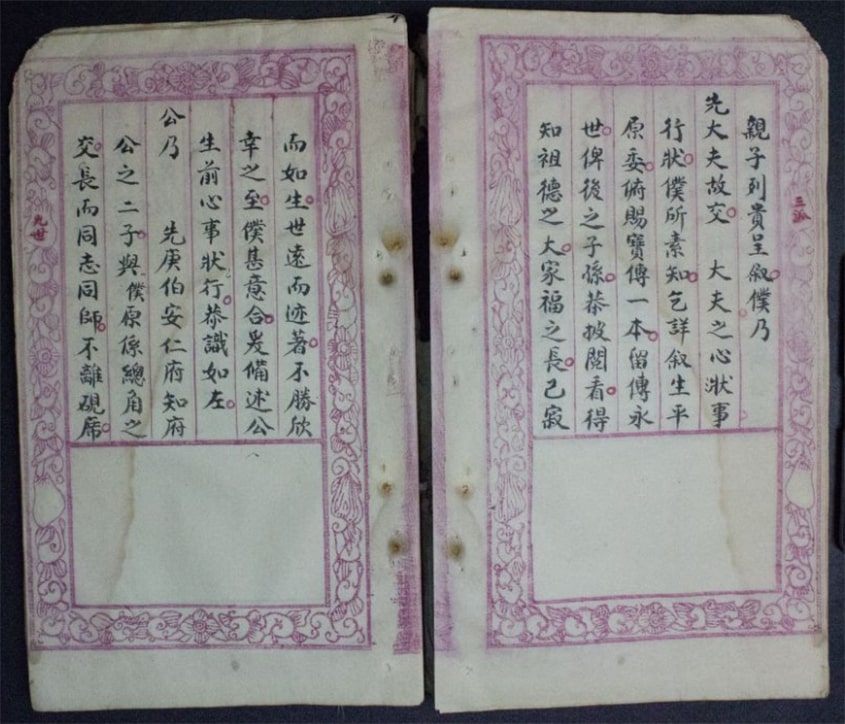 三派
親子列貴呈叙僕乃
先大夫故交 大夫之心狀事
行狀僕所素知乞詳叙生平
原委俯賜寶傳一本留傳永
世俾後之子孫恭披閱看得
知祖德之大家福之長已寂
而如生世遠而迹著不勝欣
幸之至僕甚意合爰備述公
生前心事狀行恭識如左
公乃 先庚伯安仁府知府
公之二子與僕原係總角之
交長而同志同師不離硯席
九世